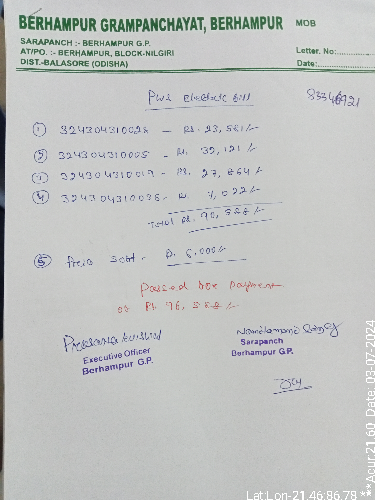 BERHAMPUR GRAMPANCHAYAT, BERHAMPUR MOB
SARAPANCH :- BERHAMPUR G.P.
AT/PO. :- BERHAMPUR, BLOCK-NILGIRI
DIST.-BALASORE (ODISHA)
Letter. No:
Date:
PWS Electric Bill
① 324304310028 - Rs. 23,581/-
② 324304310005 - Rs. 32,121/-
③ 324304310019 - Rs. 27,864/-
④ 324304310038 - Rs. 7,022/-
Total Rs. 90,588/-
⑤ - Rs. 6,000/-
Passed for payment
of Rs. 96,588/-
Executive Officer
Berhampur G.P.
Sarapanch
Berhampur G.P.
Lat Lon-21.46:86.78
***Acur:21.60 Date: 03-07-2024